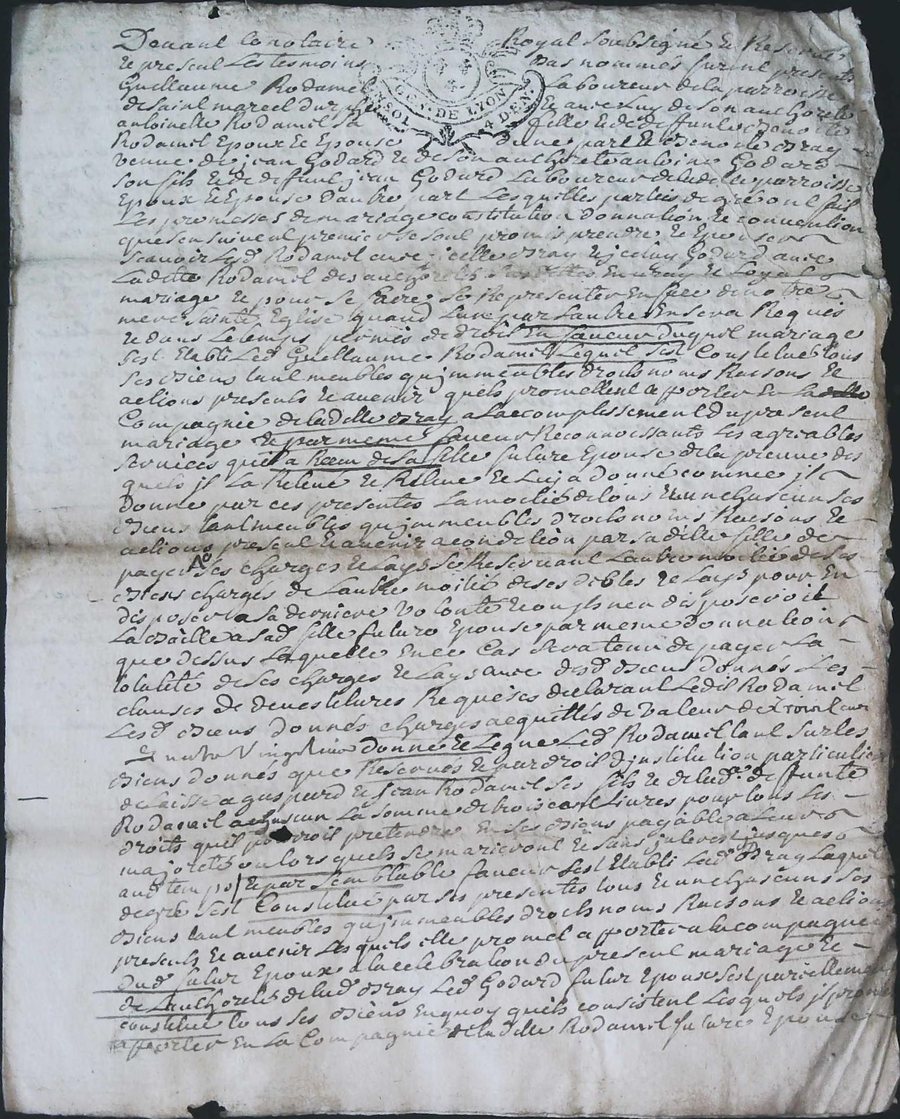 Devant Le notaire Royal soubsigné et Reservé
et present Les tesmoins bas nommés furent presents
Guillaume Rodamel Laboureur de la parroisse
de saint marcel et de son authorité
antoinette Rodamel sa fille et de deffunte Benoite
Rodamel Epoux et Epouse d'une part Et Benoite Bray
venue de jean Godard et de son authorité antoine Godard
son fils et de deffunt jean Godard Laboureur de ladite parroisse
Epoux et Epouse d'autre part Lesquelles parties de gré ont fait
Les promesses de mariage constitution donnation et convention
que sensuivent premier se sont promis prendre et Epouser
scavoir Led. Rodamel avec icelle Bray et jcelui Godard avec
Ladite Rodamel des authorités En vray et Loyal
mariage et pour se faire se Representer En face de notre
mere sainte Eglise quand Lun par Lautre En sera Requis
et dans Le temps permis de droit En faveur duquel mariage
sest Etabli Led. Guillaume Rodamel Lequel sest Constitué tous
ses Biens tant meubles qu'jmmeubles droits noms Raisons et
actions presents et avenir quels promettent apporter En La
Compagnie de ladite Bray a Laccomplissement du present
mariage et par meme faveur Reconnoissant Les agréables
services que a Receu de sa fille future Epouse de la preuve des
quels jl La Releve et Releve et Luy a donné comme jl
Donne par ces presentes La moitié de tous Et un chascun ses
Biens tant meubles qu'jmmeubles droits noms Raisons et
actions present et avenir a condition par sadite fille de
payer ses charges et Lays se Reservant Lautre moitié de ses
Biens chargés de Lautre moitié de ses debtes et Lays pour En
disposer a sa derniere volonté et ou jl nen disposeroit
La Baille a sad. fille future Epouse par meme donnation
que dessus Laquelle En ce cas sera tenue de payer La
totalité de ses charges et Lays avec desd. Biens donnés Les
clauses de devestitures Requises declarant Ledit Rodamel
Lesd. Biens donnés charges acquittés de valeur de
quatre Vingt donne et Legue Led. Rodamel tant sur les
Biens donnés que Reservés et par droit d'jnstitution particuliere
delaisse a gaspard et jean Rodamel ses fils et de lad. deffunte
Rodamel a chascun La somme de trois cent Livres pour tous Les
droits quils pourroit pretendre En ses Biens payable a Leur
majorité ou lors quils se marieront et sans jnterest jusques
aud. temps Et par semblable faveur sest Etabli Lad. Bray Laquelle
de gré sest Constitué par ses presentes tous Et un chascuns ses
Biens tant meubles qu'jmmeubles droits noms Raisons et actions
presents et avenir Lesquels elle promet apporter a la compagnie
dud. futur Epoux a la celebration du present mariage et
de Lauthorité de lad. Bray Led. Godard futur Epoux sest pareillement
constitué tous ses Biens En quoy quils consistent Lesquels jl promet
apporter En La Compagnie de ladite Rodamel future Epouse
GEN. DE LYON
SOL 4 DEN.